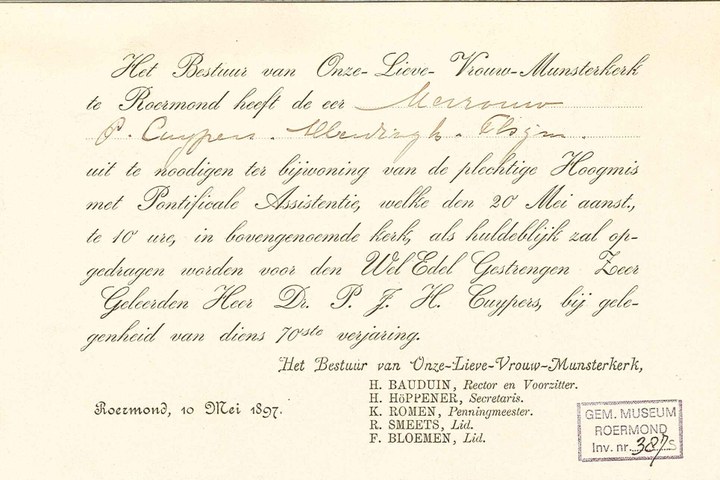 Het Bestuur van Onze-Lieve-Vrouw-Munsterkerk
te Roermond heeft de eer Mevrouw
P. Cuypers.
uit te noodigen ter bijwoning van de plechtige Hoogmis
met Pontificale Assistentie, welke den 20 Mei aanst.,
te 10 ure, in bovengenoemde kerk, als huldeblijk zal op-
gedragen worden voor den WelEdel Gestrengen Zeer
Geleerden Heer Dr. P. J. H. Cuypers, bij gele-
genheid van diens 70ste verjaring.
Het Bestuur van Onze-Lieve-Vrouw-Munsterkerk,
H. BAUDUIN, Rector en Voorzitter.
H. HöPPENER, Secretaris.
K. ROMEN, Penningmeester.
R. SMEETS, Lid.
F. BLOEMEN, Lid.
Roermond, 10 Mei 1897.
GEM. MUSEUM
ROERMOND
Inv. nr. 387